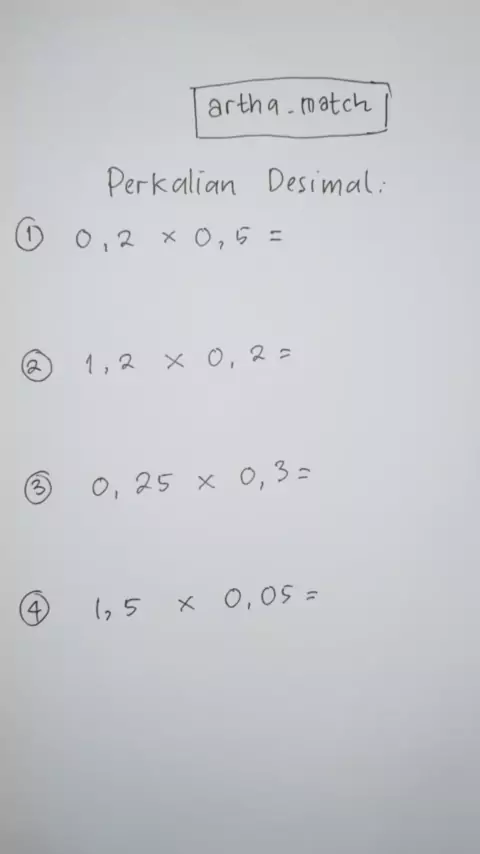 artha.match
Perkalian Desimal:
① 0,2 × 0,5 =
② 1,2 × 0,2 =
③ 0,25 × 0,3 =
④ 1,5 × 0,05 =